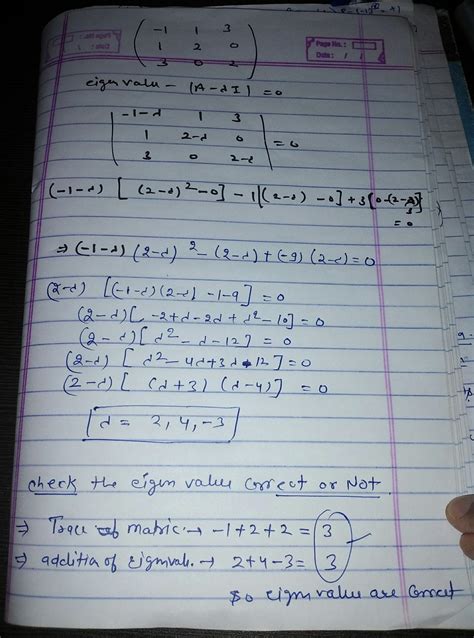 Page No. :
Date : / /
-1 1 3
1 2 0
3 0 2
eigen value - |A-λI| = 0
-1-λ 1 3
1 2-λ 0 = 0
3 0 2-λ
(-1-λ) [ (2-λ)² - 0 ] - 1 [(2-λ) - 0] + 3 [0-(2-λ)3]
= 0
⇒ (-1-λ) (2-λ)² - (2-λ) + (-9) (2-λ) = 0
(2-λ) [(-1-λ)(2-λ) - 1-9] = 0
(2-λ) [ -2+λ-2λ+λ²-10] = 0
(2-λ) [λ²-λ-12] = 0
(2-λ) [ λ²-4λ+3λ-12] = 0
(2-λ) [ (λ+3) (λ-4)] = 0
λ = 2, 4, -3
check the eigen value correct or Not.
⇒ Trace of matric → -1+2+2 = 3
⇒ addition of Eigenval. → 2+4-3 = 3
So eigen value are correct